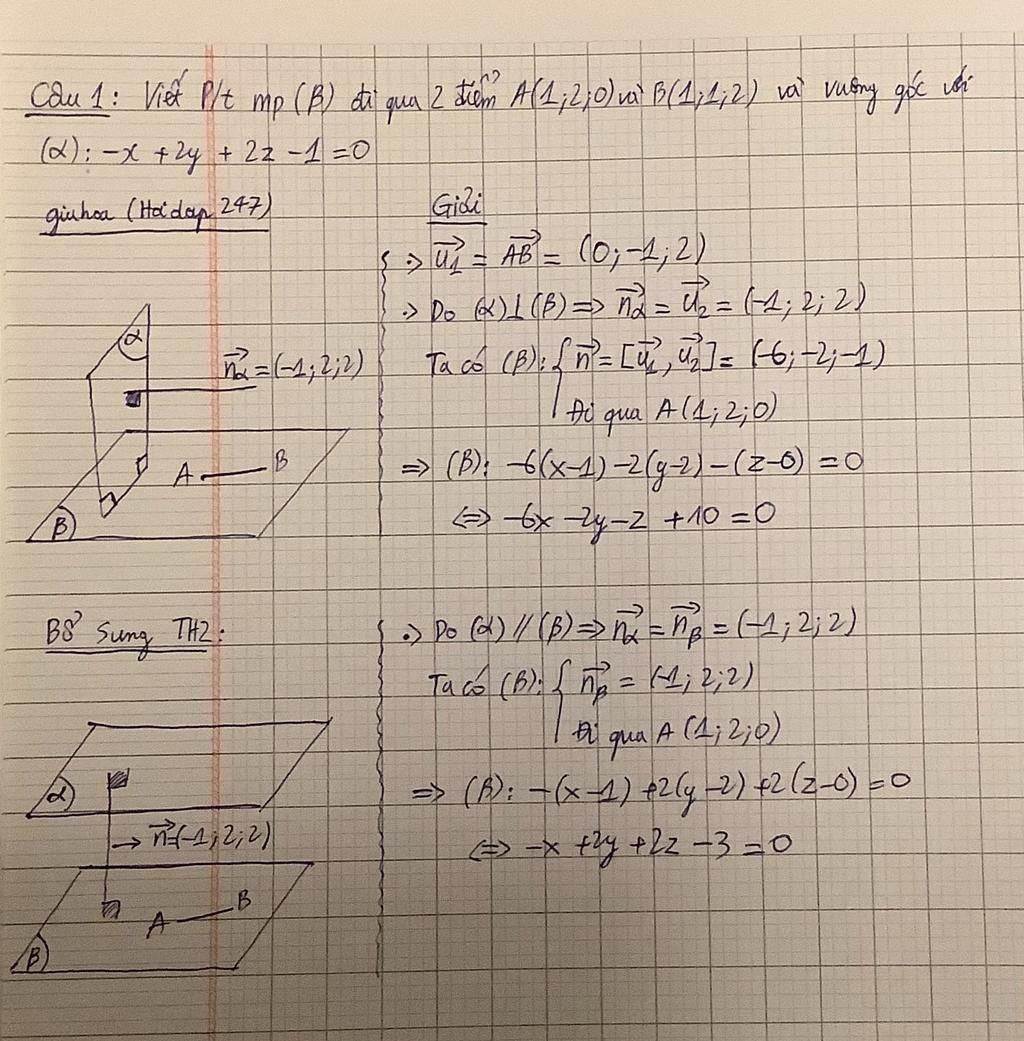 Câu 1: Viết P/t mp (β) đi qua 2 điểm A(1;2;0) và B(1;1;2) và vuông góc với
(α): -x + 2y + 2z - 1 = 0
giuhoa (Hoidap 247)
Giải
•> u₁→ = AB→ = (0;-1;2)
•> Do (α)⊥(β) => nα→ = u₂→ = (-1;2;2)
Ta có (β): { n→ = [u₁→, u₂→] = (-6;-2;-1)
Đi qua A(1;2;0)
=> (β): -6(x-1) -2(y-2) -(z-0) = 0
<=> -6x -2y -z +10 = 0
α
nα→ = (-1;2;2)
A B
β
Bổ Sung TH2:
•> Do (α) // (β) => nα→ = nβ→ = (-1;2;2)
Ta có (β): { nβ→ = (-1;2;2)
Đi qua A(1;2;0)
=> (β): -(x-1) +2(y-2) +2(z-0) = 0
<=> -x +2y +2z -3 = 0
α
→ n→=(-1;2;2)
A B
β